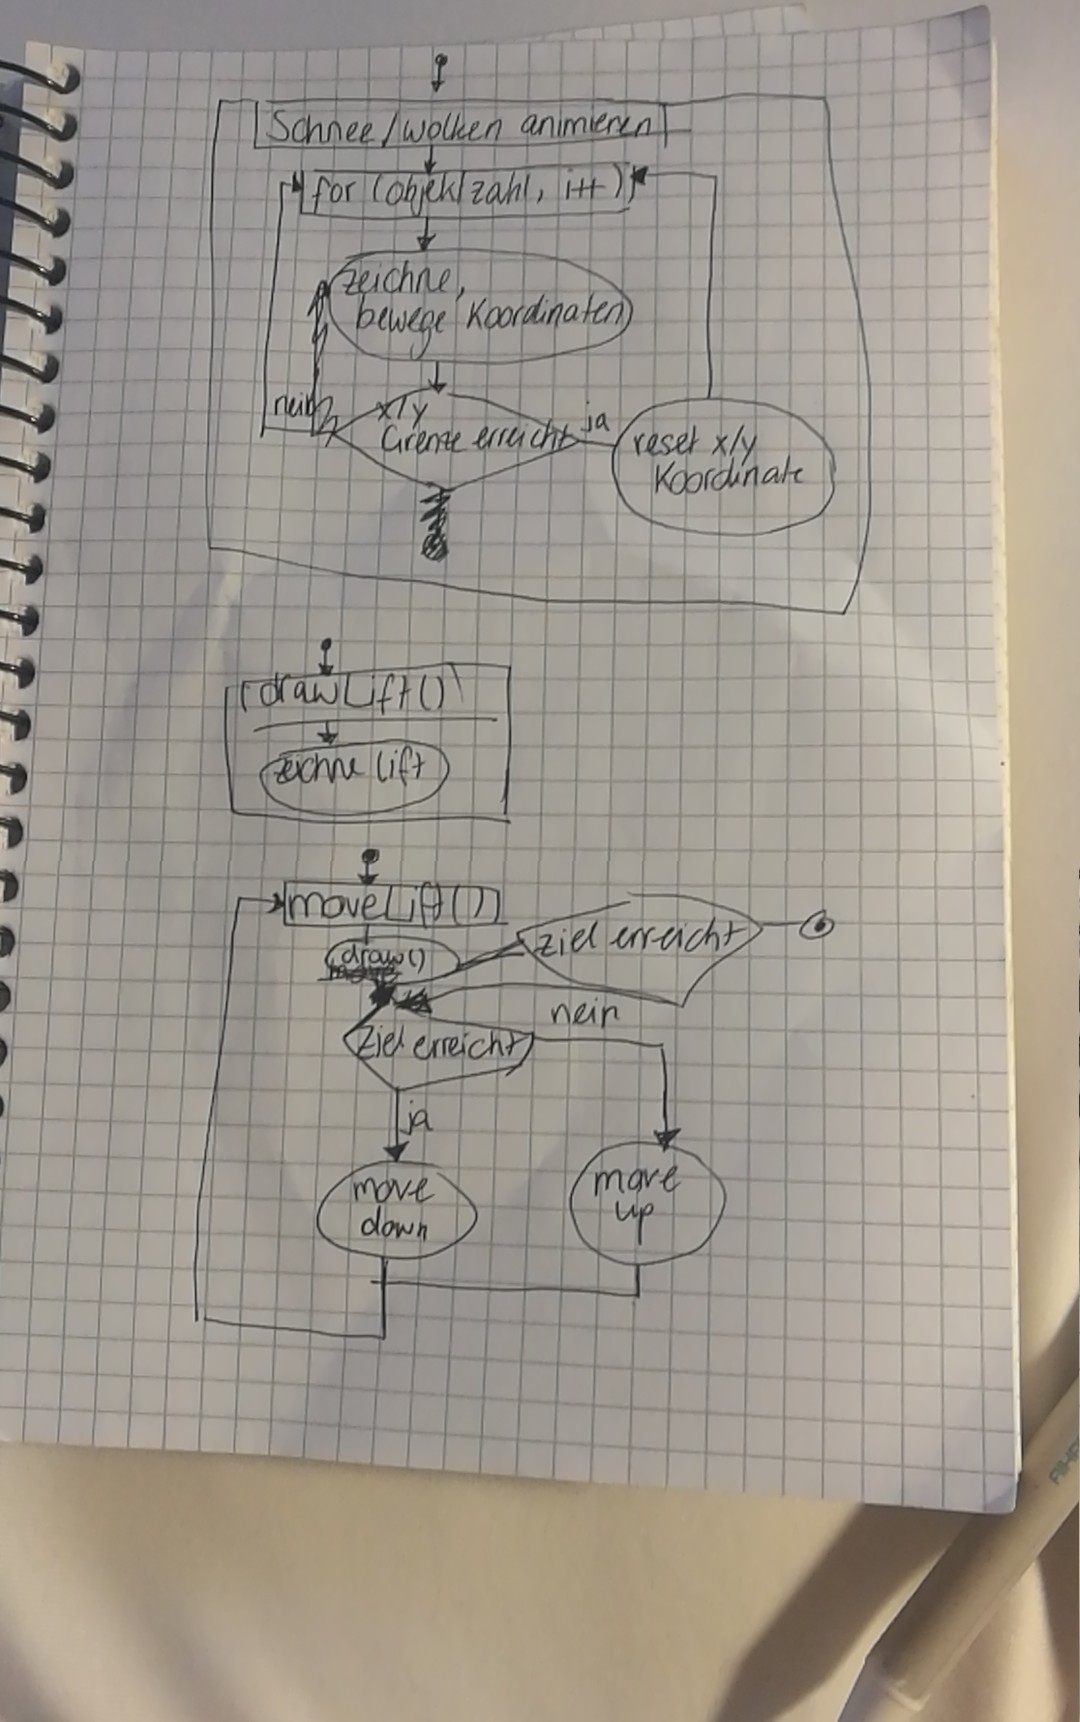 Schnee/wolken animieren
for (objektzahl, i++)
zeichne,
bewege Koordinaten
nein
x/y
Grenze erreicht
ja
reset x/y
Koordinate
drawLift()
zeichne Lift
moveLift()
ziel erreicht
draw()
nein
Ziel erreicht
ja
move
down
move
up